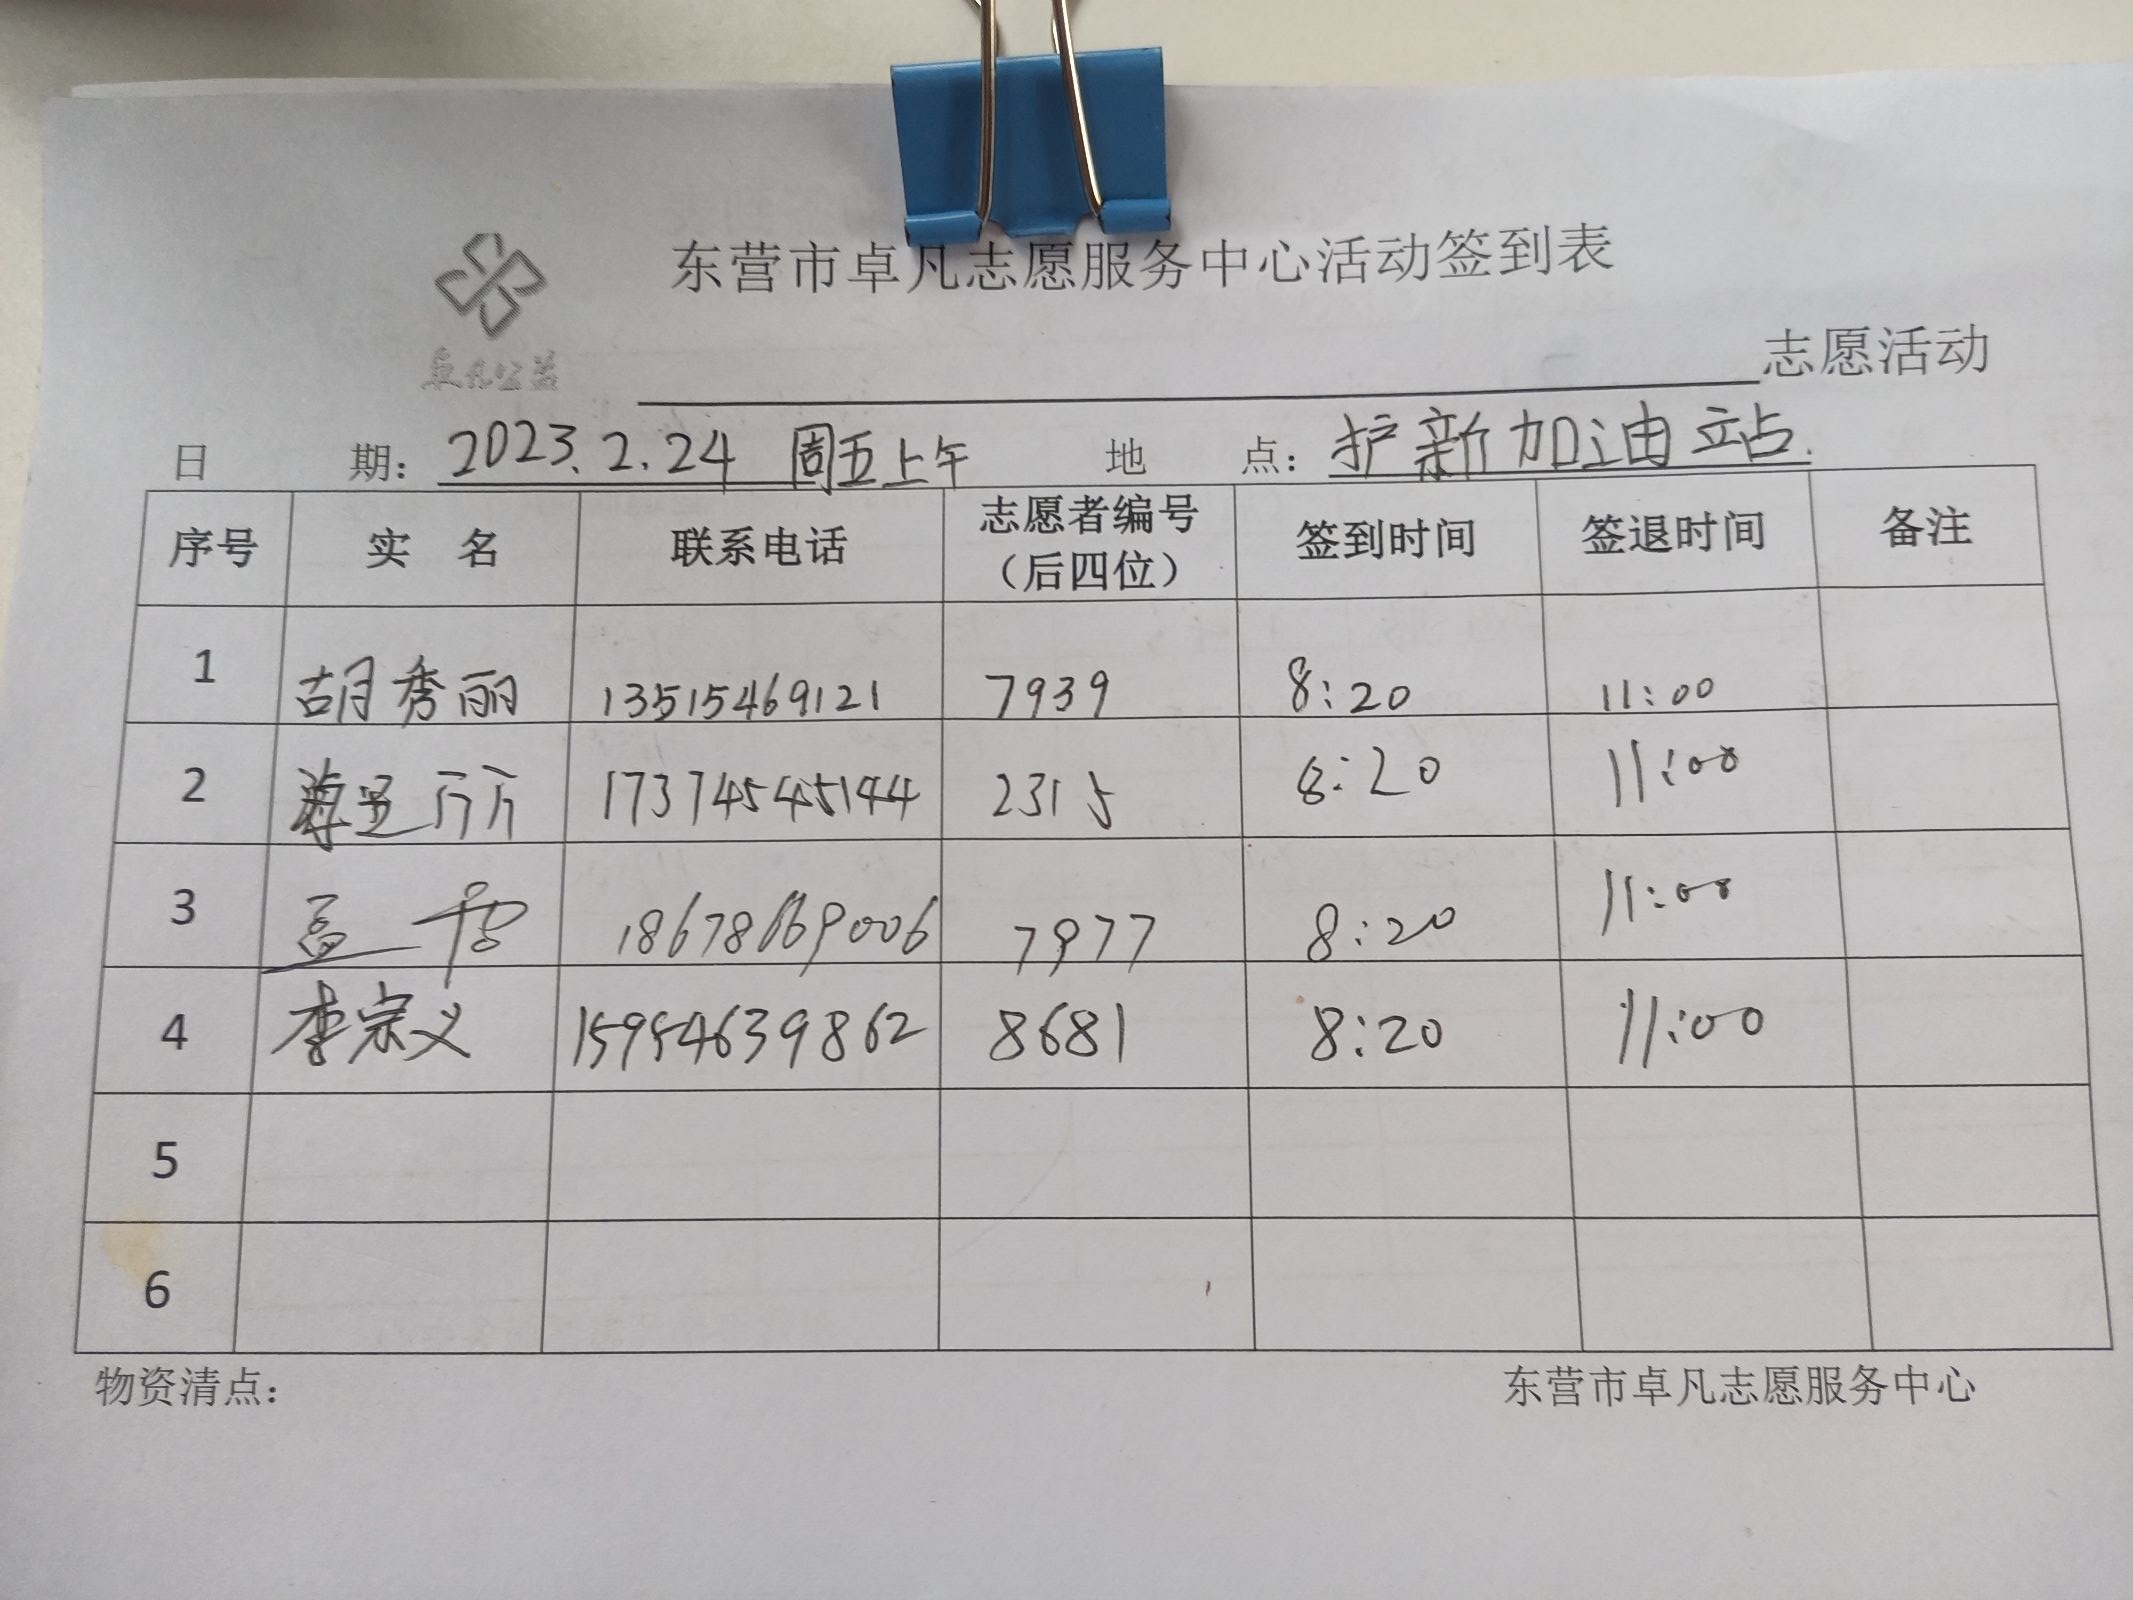 东营市卓凡志愿服务中心活动签到表
卓凡公益
志愿活动
日 期：2023.2.24 周五上午 地 点：护新加油站.
序号 实 名 联系电话 志愿者编号（后四位） 签到时间 签退时间 备注
1 胡秀丽 13515469121 7939 8:20 11:00
2 17374545144 2315 8:20 11:00
3 18678669006 7977 8:20 11:00
4 李宗义 15954639862 8681 8:20 11:00
5
6
物资清点： 东营市卓凡志愿服务中心